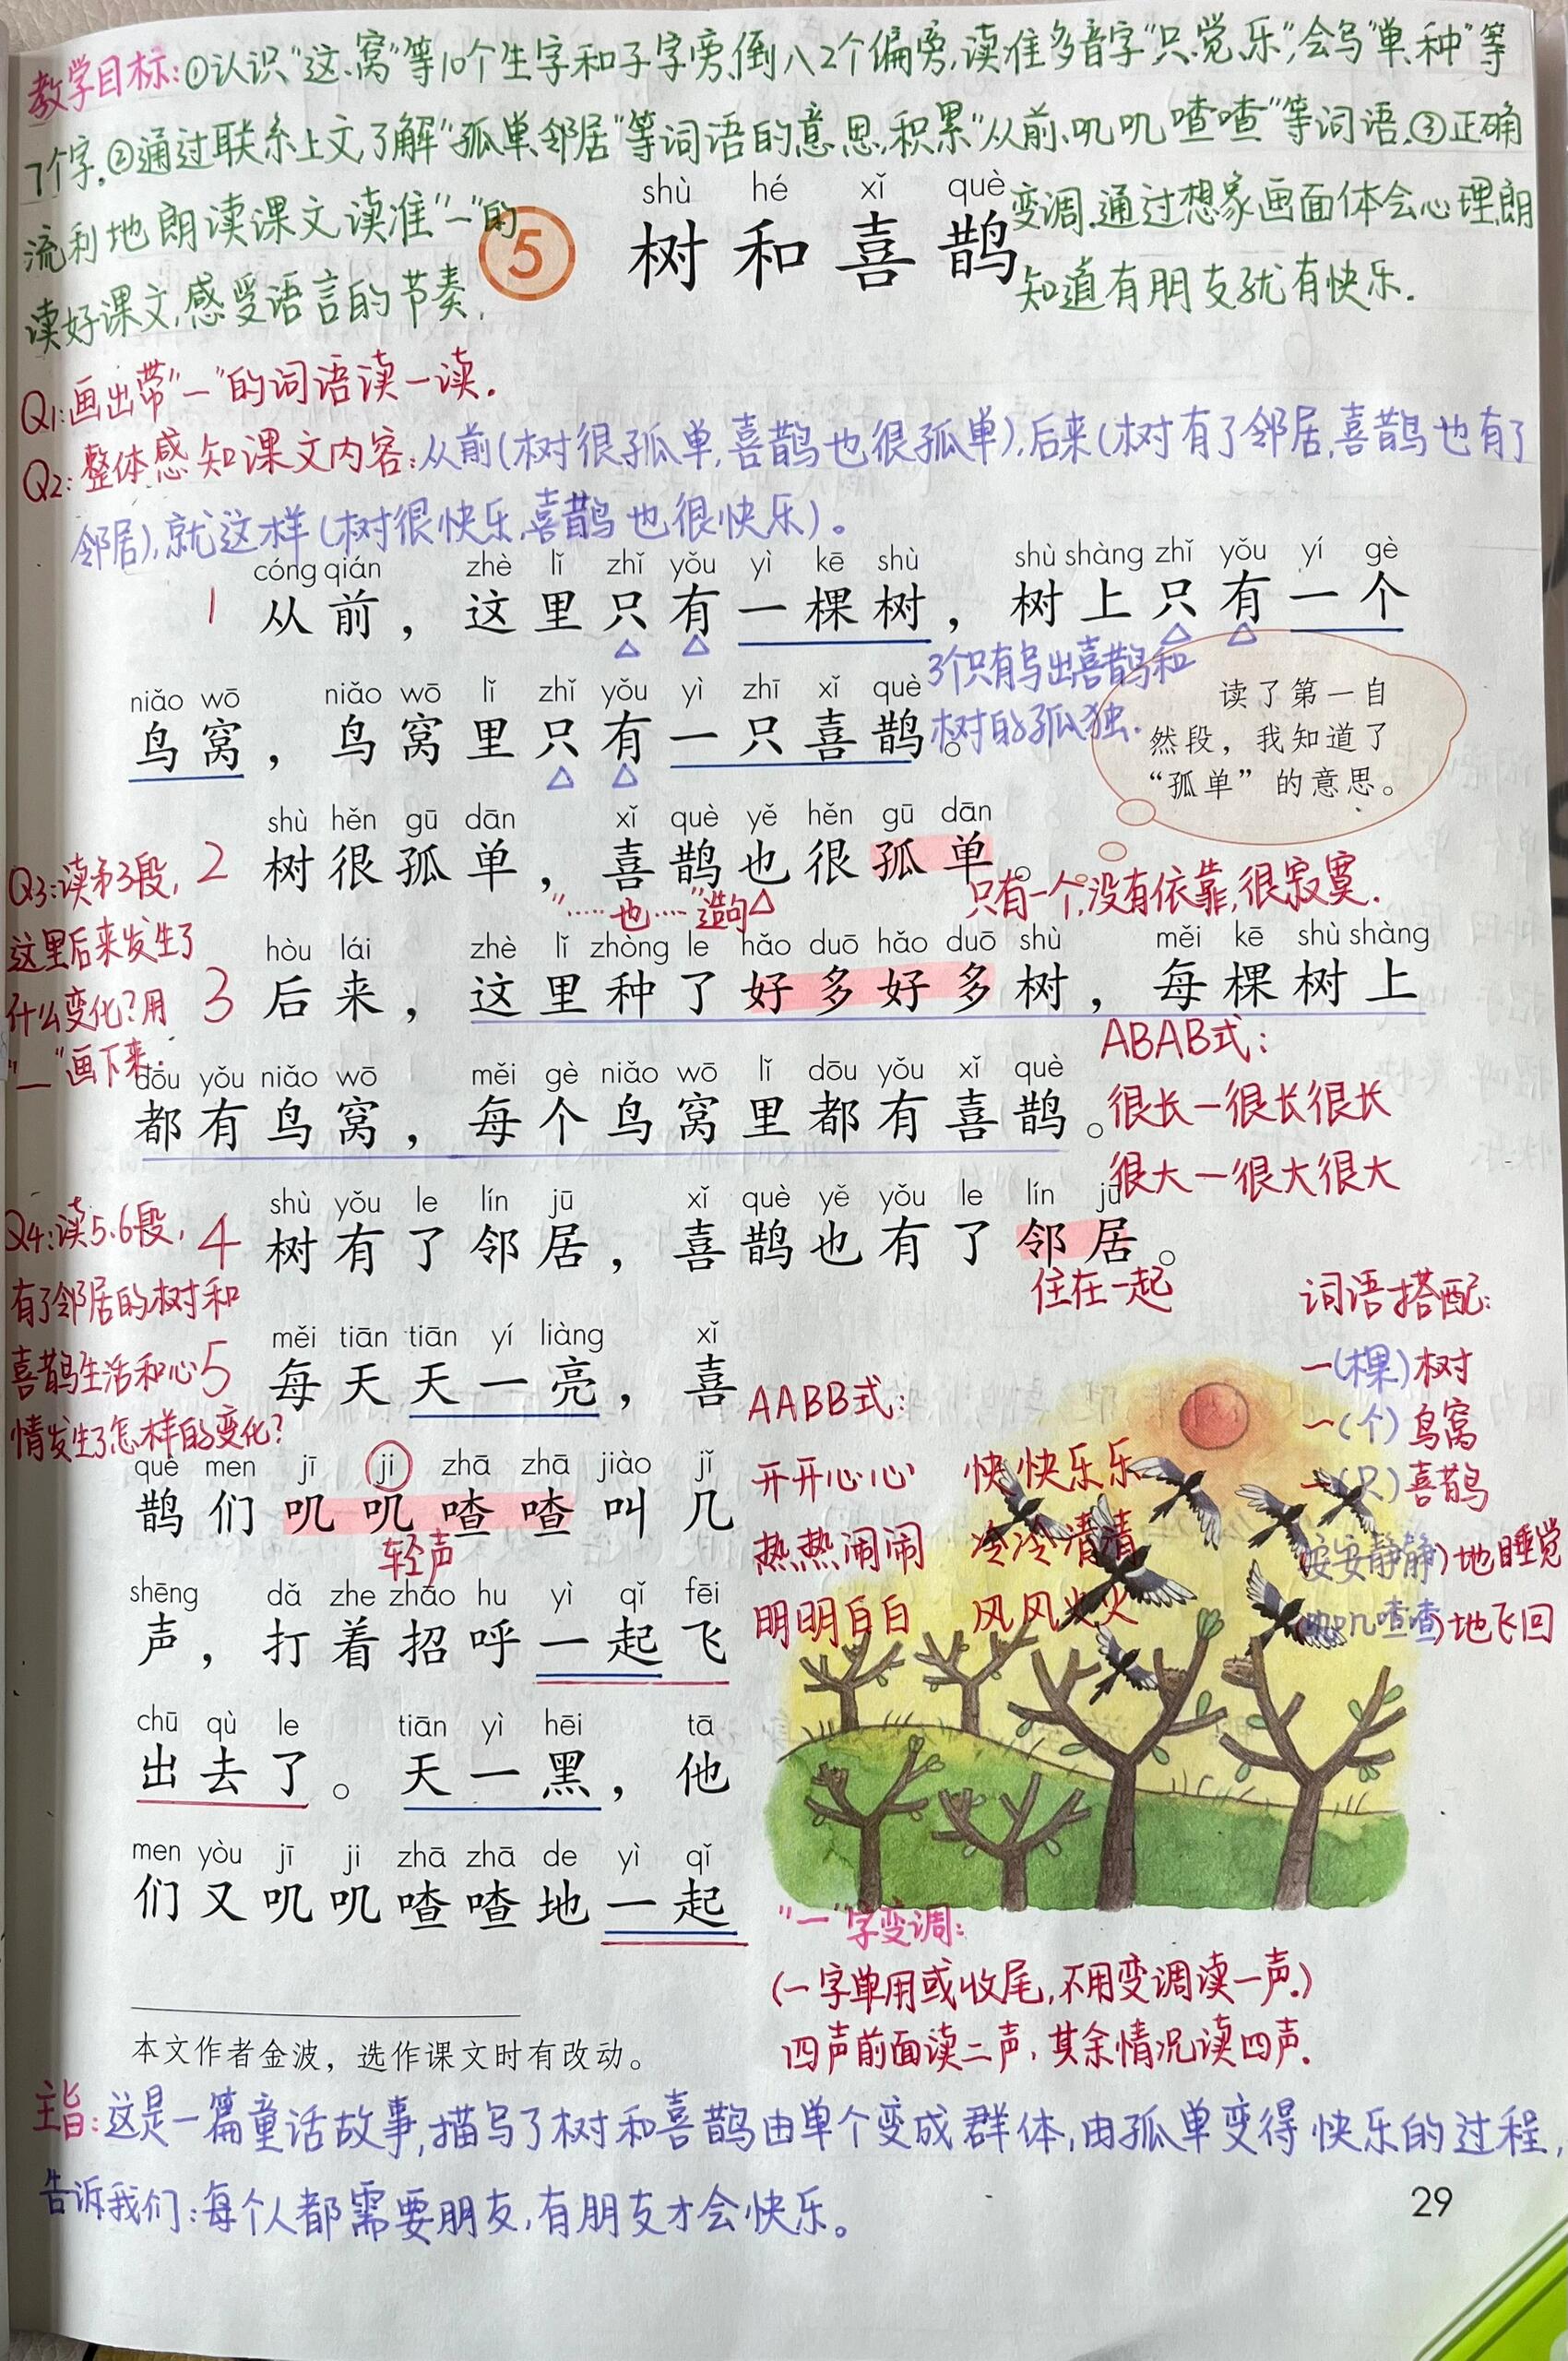 教学目标:①认识"这、窝"等10个生字和子字旁、倒八2个偏旁,读准多音字"只、觉、乐",会写"单、种"等
7个字。②通过联系上文,了解"孤单、邻居"等词语的意思,积累"从前、叽叽喳喳"等词语。③正确
流利地朗读课文,读准"一"的变调。通过想象画面体会心理,朗
读好课文,感受语言的节奏,知道有朋友就有快乐.
shù hé xǐ què
5 树和喜鹊
Q1:画出带"一"的词语读一读.
Q2:整体感知课文内容:从前(树很孤单,喜鹊也很孤单),后来(树有了邻居,喜鹊也有了
邻居),就这样(树很快乐,喜鹊也很快乐)。
cóng qián zhè lǐ zhǐ yǒu yì kē shù shù shàng zhǐ yǒu yí gè
1 从前,这里只有一棵树,树上只有一个
niǎo wō niǎo wō lǐ zhǐ yǒu yì zhī xǐ què
鸟窝,鸟窝里只有一只喜鹊。
3个只有写出喜鹊和
树的孤独.
读了第一自
然段,我知道了
“孤单”的意思。
shù hěn gū dān xǐ què yě hěn gū dān
2 树很孤单,喜鹊也很孤单。
"……也……"造句
只有一个,没有依靠,很寂寞.
Q3:读第3段,
这里后来发生了
什么变化?用
"—"画下来.
hòu lái zhè lǐ zhòng le hǎo duō hǎo duō shù měi kē shù shàng
3 后来,这里种了好多好多树,每棵树上
dōu yǒu niǎo wō měi gè niǎo wō lǐ dōu yǒu xǐ què
都有鸟窝,每个鸟窝里都有喜鹊。
ABAB式:
很长—很长很长
很大—很大很大
shù yǒu le lín jū xǐ què yě yǒu le lín jū
4 树有了邻居,喜鹊也有了邻居。
住在一起
Q4:读5.6段,
有了邻居的树和
喜鹊生活和心
情发生了怎样的变化?
měi tiān tiān yí liàng xǐ
5 每天天一亮,喜
què men jī ji zhā zhā jiào jǐ
鹊们叽叽喳喳叫几
轻声
shēng dǎ zhe zhāo hu yì qǐ fēi
声,打着招呼一起飞
chū qù le tiān yì hēi tā
出去了。天一黑,他
men yòu jī ji zhā zhā de yì qǐ
们又叽叽喳喳地一起
AABB式:
开开心心 快快乐乐
热热闹闹 冷冷清清
明明白白 风风火火
词语搭配:
一(棵)树
一(个)鸟窝
一(只)喜鹊
(安安静静)地睡觉
(叽叽喳喳)地飞回
"一"字变调:
(一字单用或收尾,不用变调读一声.)
四声前面读二声,其余情况读四声.
本文作者金波,选作课文时有改动。
主旨:这是一篇童话故事,描写了树和喜鹊由单个变成群体,由孤单变得快乐的过程,
告诉我们:每个人都需要朋友,有朋友才会快乐。
29